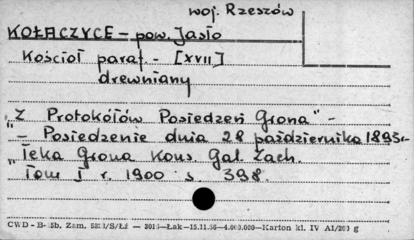 woj. Rzeszów
KOŁACZYCE - pow. Jasło
Kościół paraf. - [XVII]
drewniany
"Z Protokółów Posiedzeń Grona" -
- Posiedzenie dnia 28 października 1893 r.
"Teka Grona Kons. Gal. Zach.
Tom I r. 1900 s. 398.
CWD - B- 5b, Zam. /S/Łź — Łak—15.11.56—4.000.000—Karton kl. IV A1/200 g